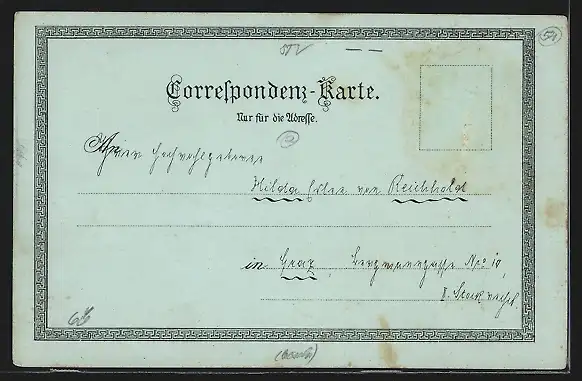 54
Correspondenz-Karte.
Nur für die Adresse.
Hochwohlgeboren
Hilda Edle von Reichhold
in Graz, Bergmanngasse No 10,
I. Stock rechts.